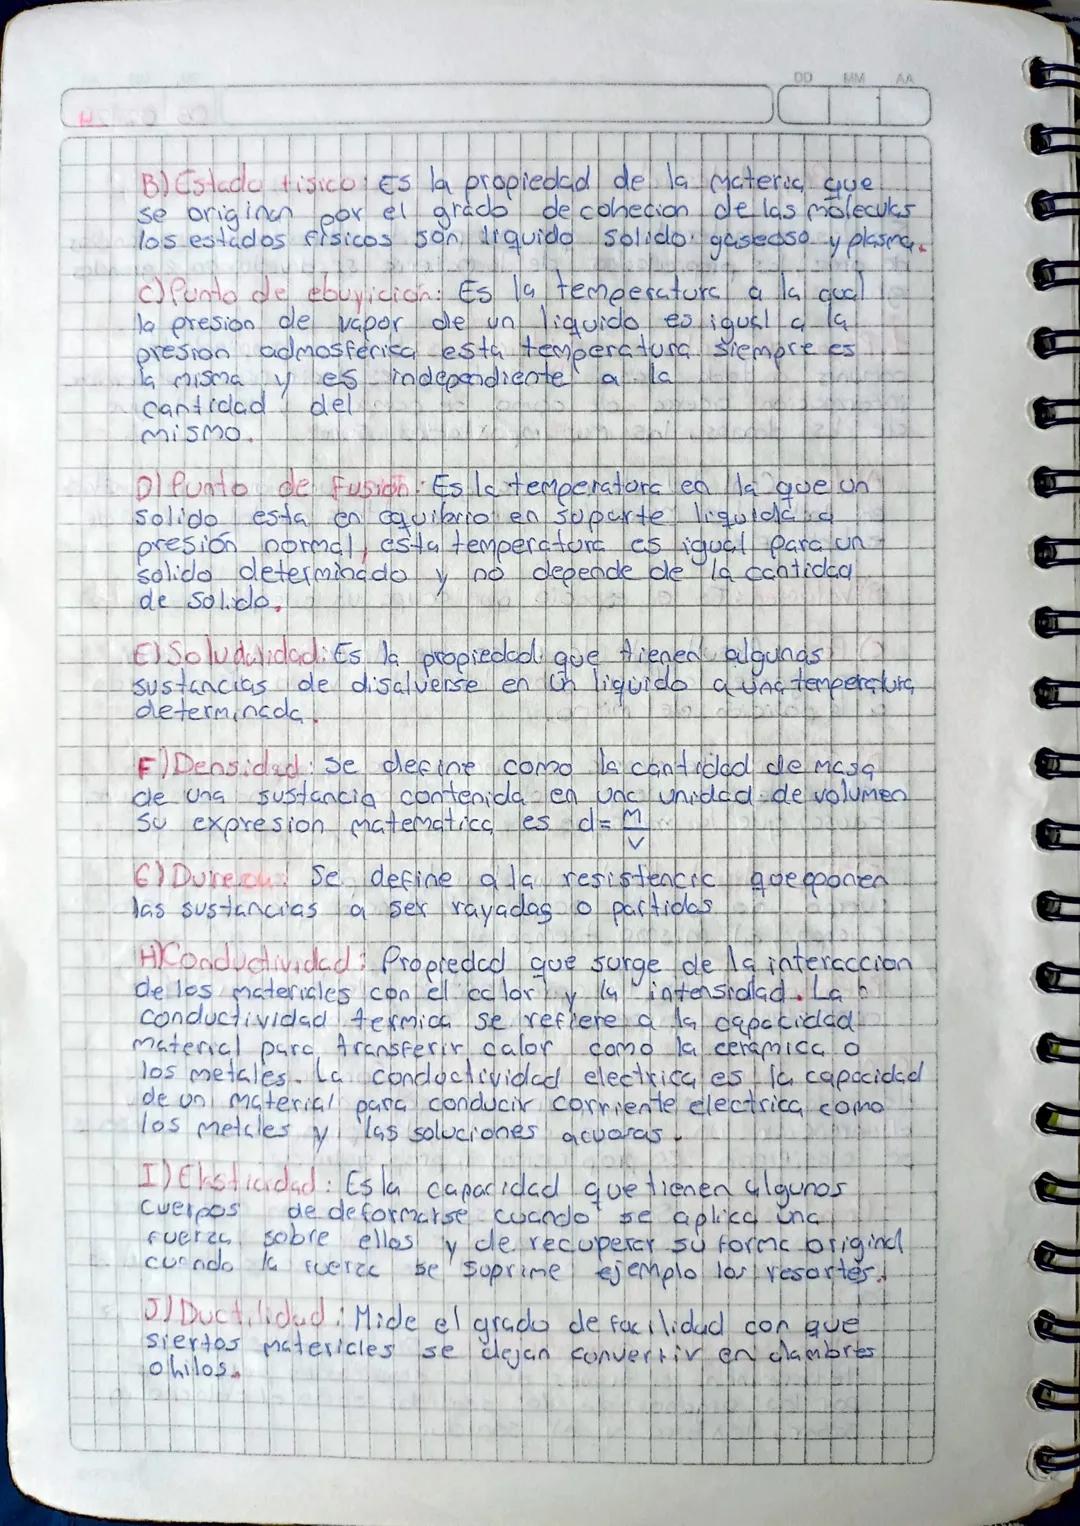 DD MM AA
B) Estado fisico: Es la propiedad de la materia que
se originan por el grado de cohecion de las moleculas
los estados fisicos son liquido solido gaseoso y plasma.
C) Punto de ebuyicion: Es la temperatura a la qual
la presion de vapor de un liquido es igual a la
presion admosferica esta temperatura siempre es
la misma y es independiente a la
cantidad del
mismo.
D) Punto de fusión: Es la temperatura en la que un
solido esta en equibrio en suparte liquida a
presión normal, esta temperatura es igual para un
solido determinado y no depende de la cantidad
de solido.
E) Soludalidad: Es la propiedad que tienen algunas
sustancias de disalverse en un liquido a una temperatura
determinada.
F) Densidad: se define como la cantidad de masa
de una sustancia contenida en una unidad de volumen
su expresion matematica es d= M
V
G) Dureza: Se define a la resistencia que oponen
las sustancias a ser rayadas o partidas
H) Conductividad: Propiedad que surge de la interaccion
de los materiales con el calor y la intensidad. La
conductividad termica se refiere a la capacidad
material para transferir calor como la ceramica o
los metales. La conductividad electrica es la capacidad
de un material para conducir corriente electrica como
los metales y las soluciones acuoras.
I) Elasticidad: Es la capacidad que tienen algunos
cuerpos de deformarse cuando se aplica una
fuerza sobre ellos y de recuperar su forma original
cuando la fuerza se suprime ejemplo los resortes.
J) Ductilidad: Mide el grado de facilidad con que
siertos materiales se dejan convertir en alambres
o hilos.